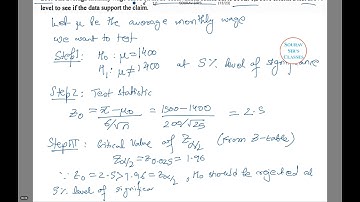 level to see if the data support the claim.
SOURAV SIR'S CLASSES
Let μ be the average monthly wage
we want to test
Step I: H₀: μ = 1400
H₁: μ ≠ 1400 at 5% level of significance
Step 2: Test statistic
Z₀ = (x̄ - μ₀)/(σ/√n) = (1500 - 1400)/(200/√25) = 2.5
Step III: Critical value of Z_α/2 (From Z-table)
Z_α/2 = Z_0.025 = 1.96
∵ Z₀ = 2.5 > 1.96 = Z_α/2, H₀ should be rejected at
5% level of significan